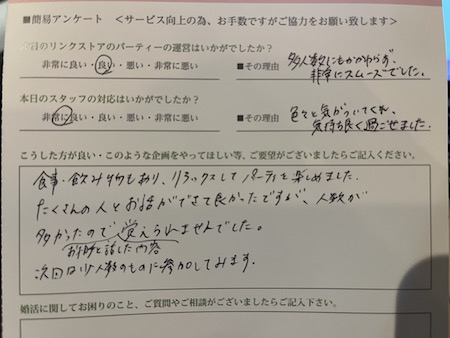 ■簡易アンケート ＜サービス向上の為、お手数ですがご協力をお願い致します＞
本日のリンクストアのパーティーの運営はいかがでしたか？
非常に良い・良い・悪い・非常に悪い ■その理由 多人数にもかかわらず、
非常にスムーズでした。
本日のスタッフの対応はいかがでしたか？
非常に良い・良い・悪い・非常に悪い ■その理由 色々と気がついてくれ、
気持ち良く過ごせました。
こうした方が良い・このような企画をやってほしい等、ご要望がございましたらご記入ください。
食事・飲み物もあり、リラックスしてパーティを楽しめました。
たくさんの人とお話ができて良かったですが、人数が
多かったので覚えられませんでした。
お相手と話した内容
次回は少人数のものに参加してみます。
婚活に関してお困りのこと、ご質問やご相談がございましたらご記入下さい。